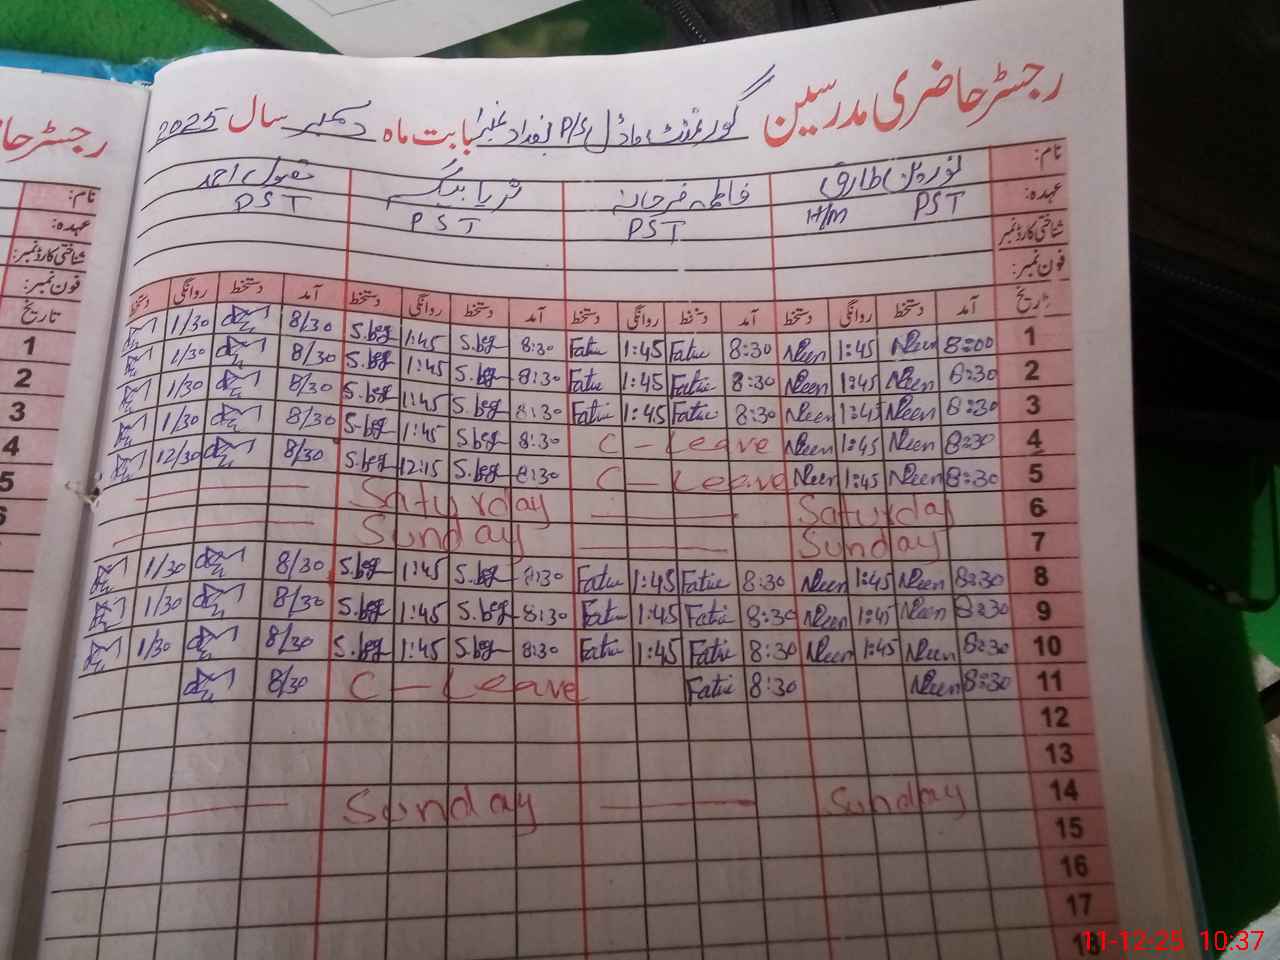 رجسٹر حاضری مدرسین گورنمنٹ ماڈل P/S بغداد نمبر 1 بابت ماہ دسمبر سال 2025
نام: نورین طارق فاطمہ فرحانہ ثریا بیگم مقبول احمد
عہدہ: PST H/M PST PST PST
شناختی کارڈ نمبر:
فون نمبر:
تاریخ آمد دستخط روانگی دستخط آمد دستخط روانگی دستخط آمد دستخط روانگی دستخط آمد دستخط روانگی دستخط
1/30 8/30 S.beg 1:45 S.beg 8:30 Fatu 1:45 Fatu 8:30 Neen 1:45 Neen 8:00 1
1/30 8/30 S.beg 1:45 S.beg 8:30 Fatu 1:45 Fatu 8:30 Neen 1:45 Neen 8:30 2
1/30 8/30 S.beg 1:45 S.beg 8:30 Fatu 1:45 Fatu 8:30 Neen 1:45 Neen 8:30 3
1/30 8/30 S.beg 1:45 S.beg 8:30 C - Leave Neen 1:45 Neen 8:30 4
12/30 8/30 S.beg 12:15 S.beg 8:30 C - Leave Neen 1:45 Neen 8:30 5
Saturday Saturday 6
Sunday Sunday 7
1/30 8/30 S.beg 1:45 S.beg 8:30 Fatu 1:45 Fatu 8:30 Neen 1:45 Neen 8:30 8
1/30 8/30 S.beg 1:45 S.beg 8:30 Fatu 1:45 Fatu 8:30 Neen 1:45 Neen 8:30 9
1/30 8/30 S.beg 1:45 S.beg 8:30 Fatu 1:45 Fatu 8:30 Neen 1:45 Neen 8:30 10
8/30 C - Leave Fatu 8:30 Neen 8:30 11
12
13
Sunday Sunday 14
15
16
17
18
رجسٹر حا
نام:
عہدہ:
شناختی کارڈ نمبر:
فون نمبر:
تاریخ
1
2
3
4
5
6
7
11-12-25 10:37